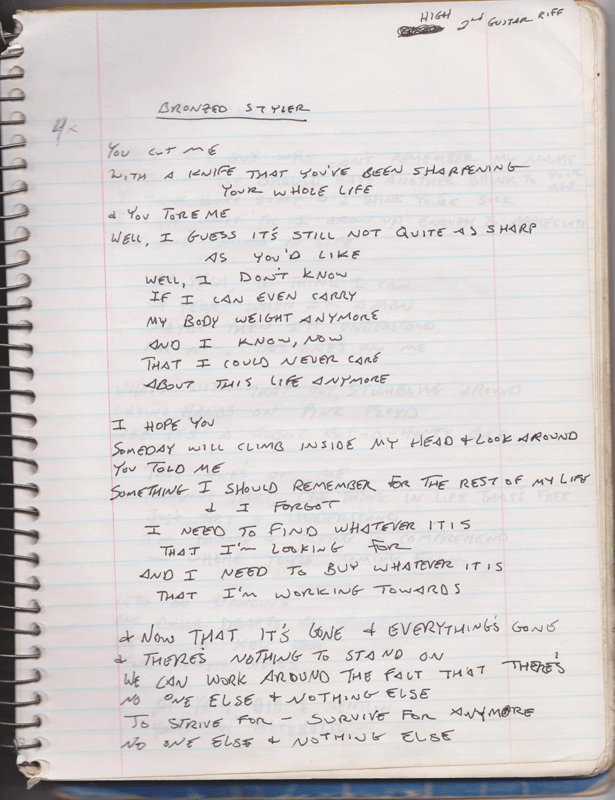 HIGH
2nd GUITAR RIFF
BRONZED STYLER
4x
YOU CUT ME
WITH A KNIFE THAT YOU'VE BEEN SHARPENING
YOUR WHOLE LIFE
& YOU TORE ME
WELL, I GUESS IT'S STILL NOT QUITE AS SHARP
AS YOU'D LIKE
WELL, I DON'T KNOW
IF I CAN EVEN CARRY
MY BODY WEIGHT ANYMORE
AND I KNOW, NOW
THAT I COULD NEVER CARE
ABOUT THIS LIFE ANYMORE
I HOPE YOU
SOMEDAY WILL CLIMB INSIDE MY HEAD & LOOK AROUND
YOU TOLD ME
SOMETHING I SHOULD REMEMBER FOR THE REST OF MY LIFE
& I FORGOT
I NEED TO FIND WHATEVER IT IS
THAT I'M LOOKING FOR
AND I NEED TO BUY WHATEVER IT IS
THAT I'M WORKING TOWARDS
& NOW THAT IT'S GONE & EVERYTHING'S GONE
& THERE'S NOTHING TO STAND ON
WE CAN WORK AROUND THE FACT THAT THERE'S
NO ONE ELSE & NOTHING ELSE
TO STRIVE FOR - SURVIVE FOR ANYMORE
NO ONE ELSE & NOTHING ELSE